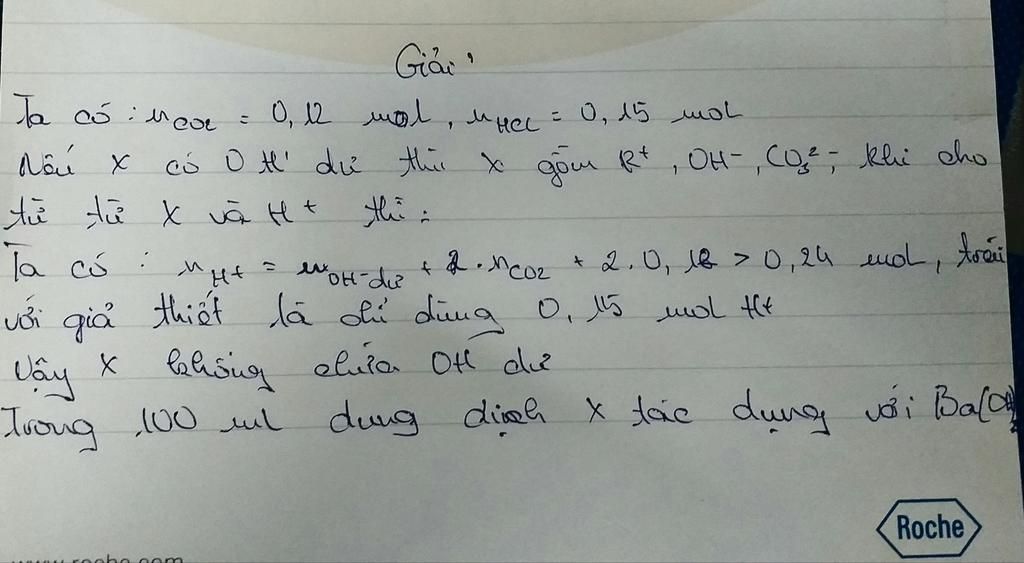 Giải
Ta có : nCO2 = 0,12 mol, nHCl = 0,15 mol
Nếu X có OH- dư thì X gồm K+, OH-, CO3 2-, khi cho
từ từ X và H+ thì :
Ta có : nH+ = nOH- dư + 2.nCO2 + 2.0,12 > 0,24 mol, trái
với giả thiết là chỉ dùng 0,15 mol H+
Vậy X không chứa OH dư
Trong 100 ml dung dịch X tác dụng với Ba(OH)2
Roche
www.roche.com